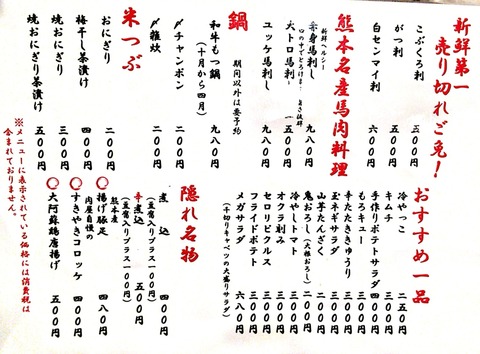 新鮮第一
売り切れご免!
こぶくろ刺 五〇〇円
がつ刺 五〇〇円
白センマイ刺 六〇〇円
熊本名産馬肉料理
新鮮ヘルシー
赤身馬刺し 九八〇円
口の中でとろける! 旨さ抜群
大トロ馬刺し
ユッケ馬刺し 九八〇円
鍋
期間以外は要予約
和牛もつ鍋 九八〇円
(十月から四月)
〆チャンポン 二〇〇円
〆雑炊 二〇〇円
米つぶ
おにぎり 二〇〇円
梅干し茶漬け 四〇〇円
焼おにぎり 三〇〇円
焼おにぎり茶漬け 五〇〇円
おすすめ一品
冷やっこ 二五〇円
キムチ 三〇〇円
手作りポテトサラダ 四〇〇円
もろキュー 三〇〇円
辛たたききゅうり 三〇〇円
玉ネギサラダ 三〇〇円
山芋たんざく 三〇〇円
鬼おろし(大根おろし) 二〇〇円
冷やしトマト 三〇〇円
オクラ刺み 三〇〇円
セロリピクルス 三〇〇円
フライドポテト 三八〇円
メガサラダ 六八〇円
(千切りキャベツの大盛りサラダ)
隠れ名物
煮込 四〇〇円
(豆腐入りプラス一〇〇円)
辛煮込 五〇〇円
(豆腐入りプラス一〇〇円)
熊本産
揚げ豚足 四八〇円
肉屋自慢の
すきやきコロッケ 四〇〇円
大阿蘇鶏唐揚げ 五〇〇円
※メニューに表示されている価格には消費税は
含まれておりません。